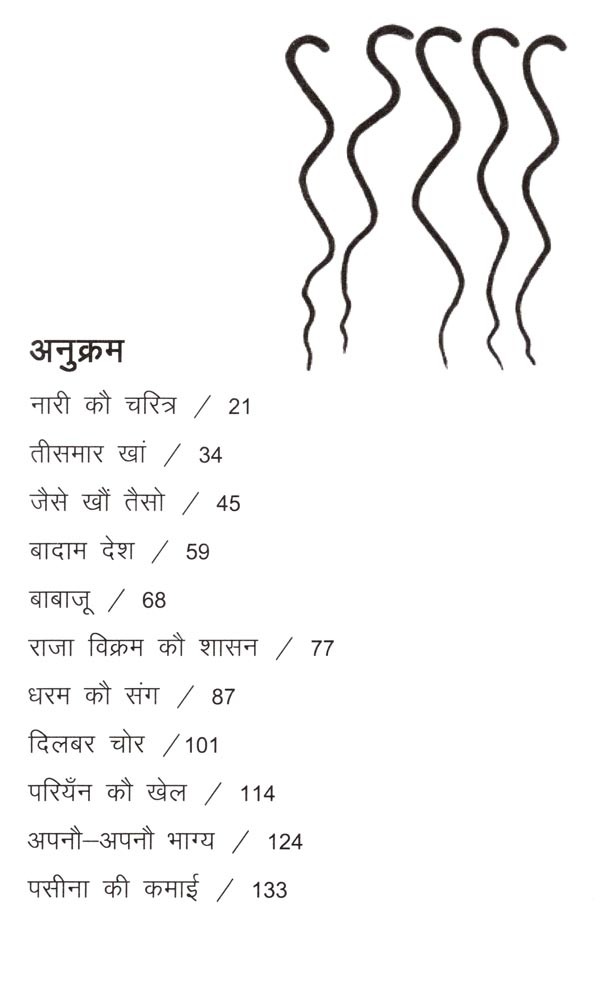 अनुक्रम
नारी कौ चरित्र / 21
तीसमार खां / 34
जैसे खौं तैसो / 45
बादाम देश / 59
बाबाजू / 68
राजा विक्रम कौ शासन / 77
धरम कौ संग / 87
दिलबर चोर /101
परियँन कौ खेल / 114
अपनौ–अपनौ भाग्य / 124
पसीना की कमाई / 133